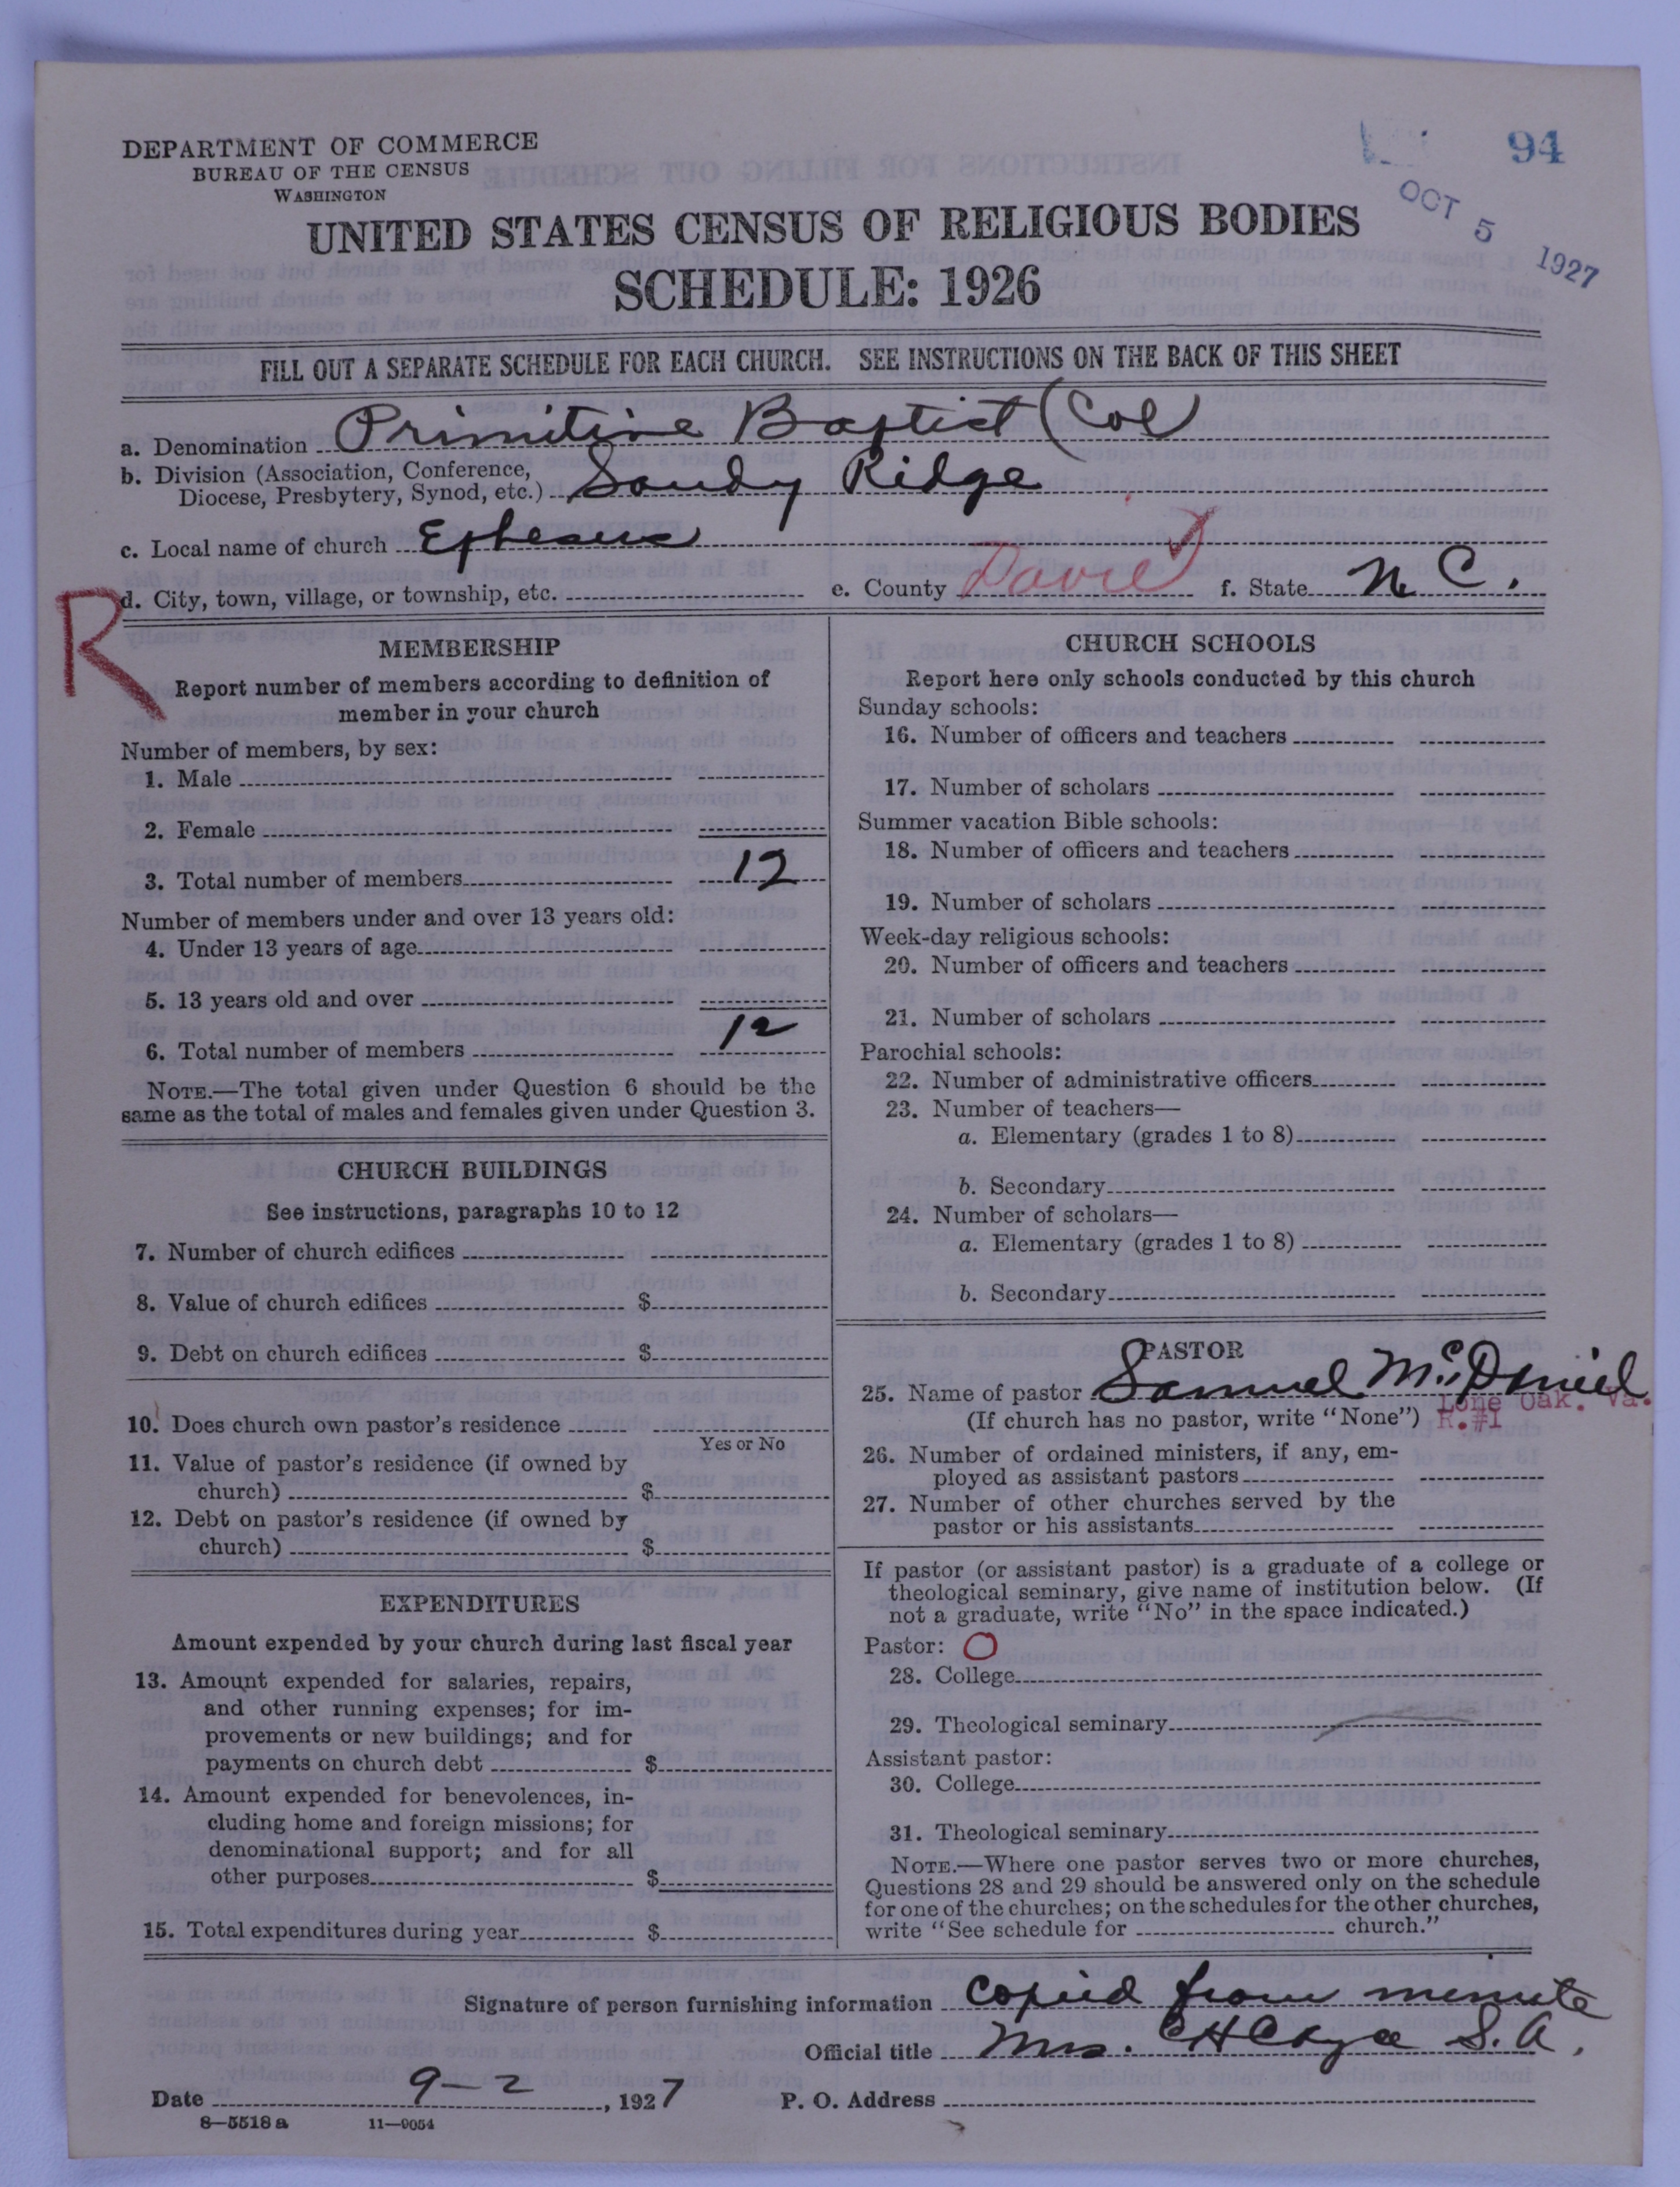 DEPARTMENT OF COMMERCE
BUREAU OF THE CENSUS
WASHINGTON
94
OCT 5 1927
UNITED STATES CENSUS OF RELIGIOUS BODIES
SCHEDULE: 1926
FILL OUT A SEPARATE SCHEDULE FOR EACH CHURCH. SEE INSTRUCTIONS ON THE BACK OF THIS SHEET
a. Denomination Primitive Baptist (Col)
b. Division (Association, Conference,
Diocese, Presbytery, Synod, etc.) Sandy Ridge
c. Local name of church Ephesus
R
d. City, town, village, or township, etc. e. County Davie f. State N C.
MEMBERSHIP
Report number of members according to definition of
member in your church
Number of members, by sex:
1. Male
2. Female
3. Total number of members 12
Number of members under and over 13 years old:
4. Under 13 years of age
5. 13 years old and over
6. Total number of members 12
NOTE.—The total given under Question 6 should be the
same as the total of males and females given under Question 3.
CHURCH BUILDINGS
See instructions, paragraphs 10 to 12
7. Number of church edifices
8. Value of church edifices $
9. Debt on church edifices $
10. Does church own pastor's residence
Yes or No
11. Value of pastor's residence (if owned by
church) $
12. Debt on pastor's residence (if owned by
church) $
EXPENDITURES
Amount expended by your church during last fiscal year
13. Amount expended for salaries, repairs,
and other running expenses; for im-
provements or new buildings; and for
payments on church debt $
14. Amount expended for benevolences, in-
cluding home and foreign missions; for
denominational support; and for all
other purposes $
15. Total expenditures during year $
CHURCH SCHOOLS
Report here only schools conducted by this church
Sunday schools:
16. Number of officers and teachers
17. Number of scholars
Summer vacation Bible schools:
18. Number of officers and teachers
19. Number of scholars
Week-day religious schools:
20. Number of officers and teachers
21. Number of scholars
Parochial schools:
22. Number of administrative officers
23. Number of teachers—
a. Elementary (grades 1 to 8)
b. Secondary
24. Number of scholars—
a. Elementary (grades 1 to 8)
b. Secondary
PASTOR
25. Name of pastor Samuel McDaniel
Lone Oak. Va.
(If church has no pastor, write "None") R.#1
26. Number of ordained ministers, if any, em-
ployed as assistant pastors
27. Number of other churches served by the
pastor or his assistants
If pastor (or assistant pastor) is a graduate of a college or
theological seminary, give name of institution below. (If
not a graduate, write "No" in the space indicated.)
Pastor: O
28. College
29. Theological seminary
Assistant pastor:
30. College
31. Theological seminary
NOTE.—Where one pastor serves two or more churches,
Questions 28 and 29 should be answered only on the schedule
for one of the churches; on the schedules for the other churches,
write "See schedule for church."
Signature of person furnishing information copied from minute
Official title Mrs. S. A.
Date 9-2, 1927 P. O. Address
8—5518 a 11—9054